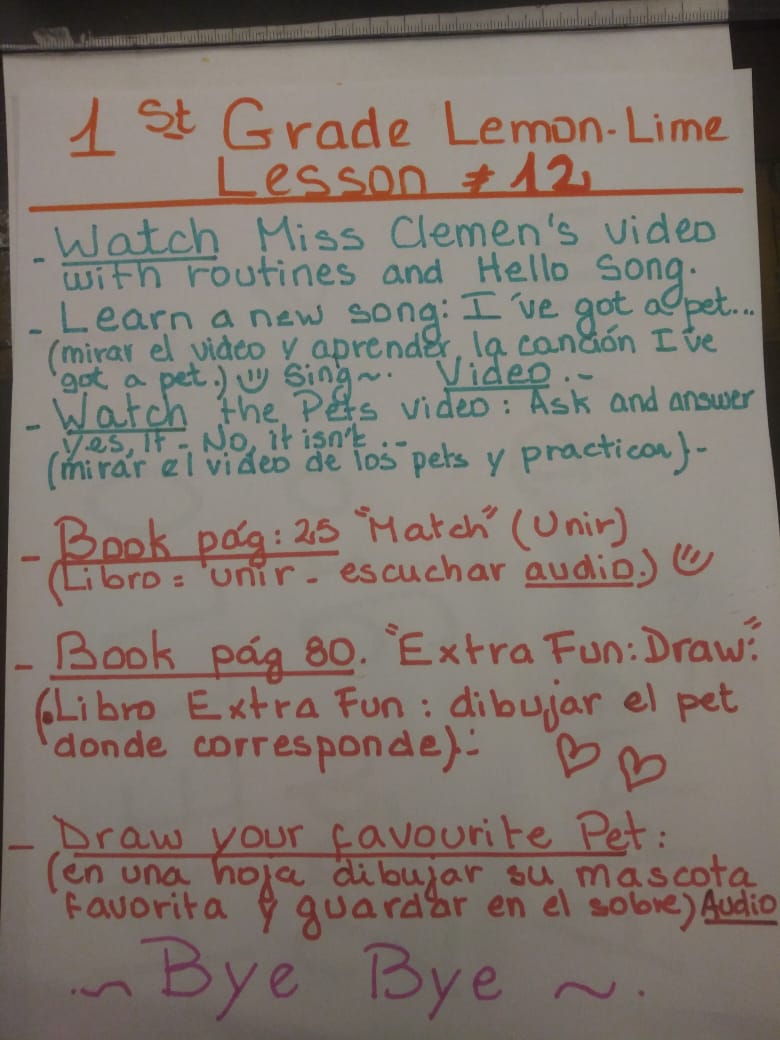 1 St Grade Lemon-Lime
Lesson # 12
- Watch Miss Clemen's video
with routines and Hello Song.
- Learn a new song: I've got a pet...
(mirar el video y aprender la canción I've
got a pet.) Sing~. Video.-
- Watch the Pets video: Ask and answer
Yes, it - No, it isn't..-
(mirar el video de los pets y practicar).-
- Book pág: 25 "Match" (Unir)
(Libro = unir - escuchar audio.)
- Book pág 80. "Extra Fun: Draw":
(.Libro Extra Fun: dibujar el pet
donde corresponde).-
- Draw your favourite Pet:
(en una hoja dibujar su mascota
favorita y guardar en el sobre) Audio
.~ Bye Bye ~.